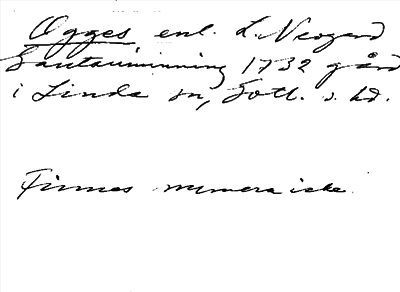 Ogges enl. L. Neogard
Gautauminning 1732 gård
i Linde sn, Gotl. s. hd.
Finnes numera icke